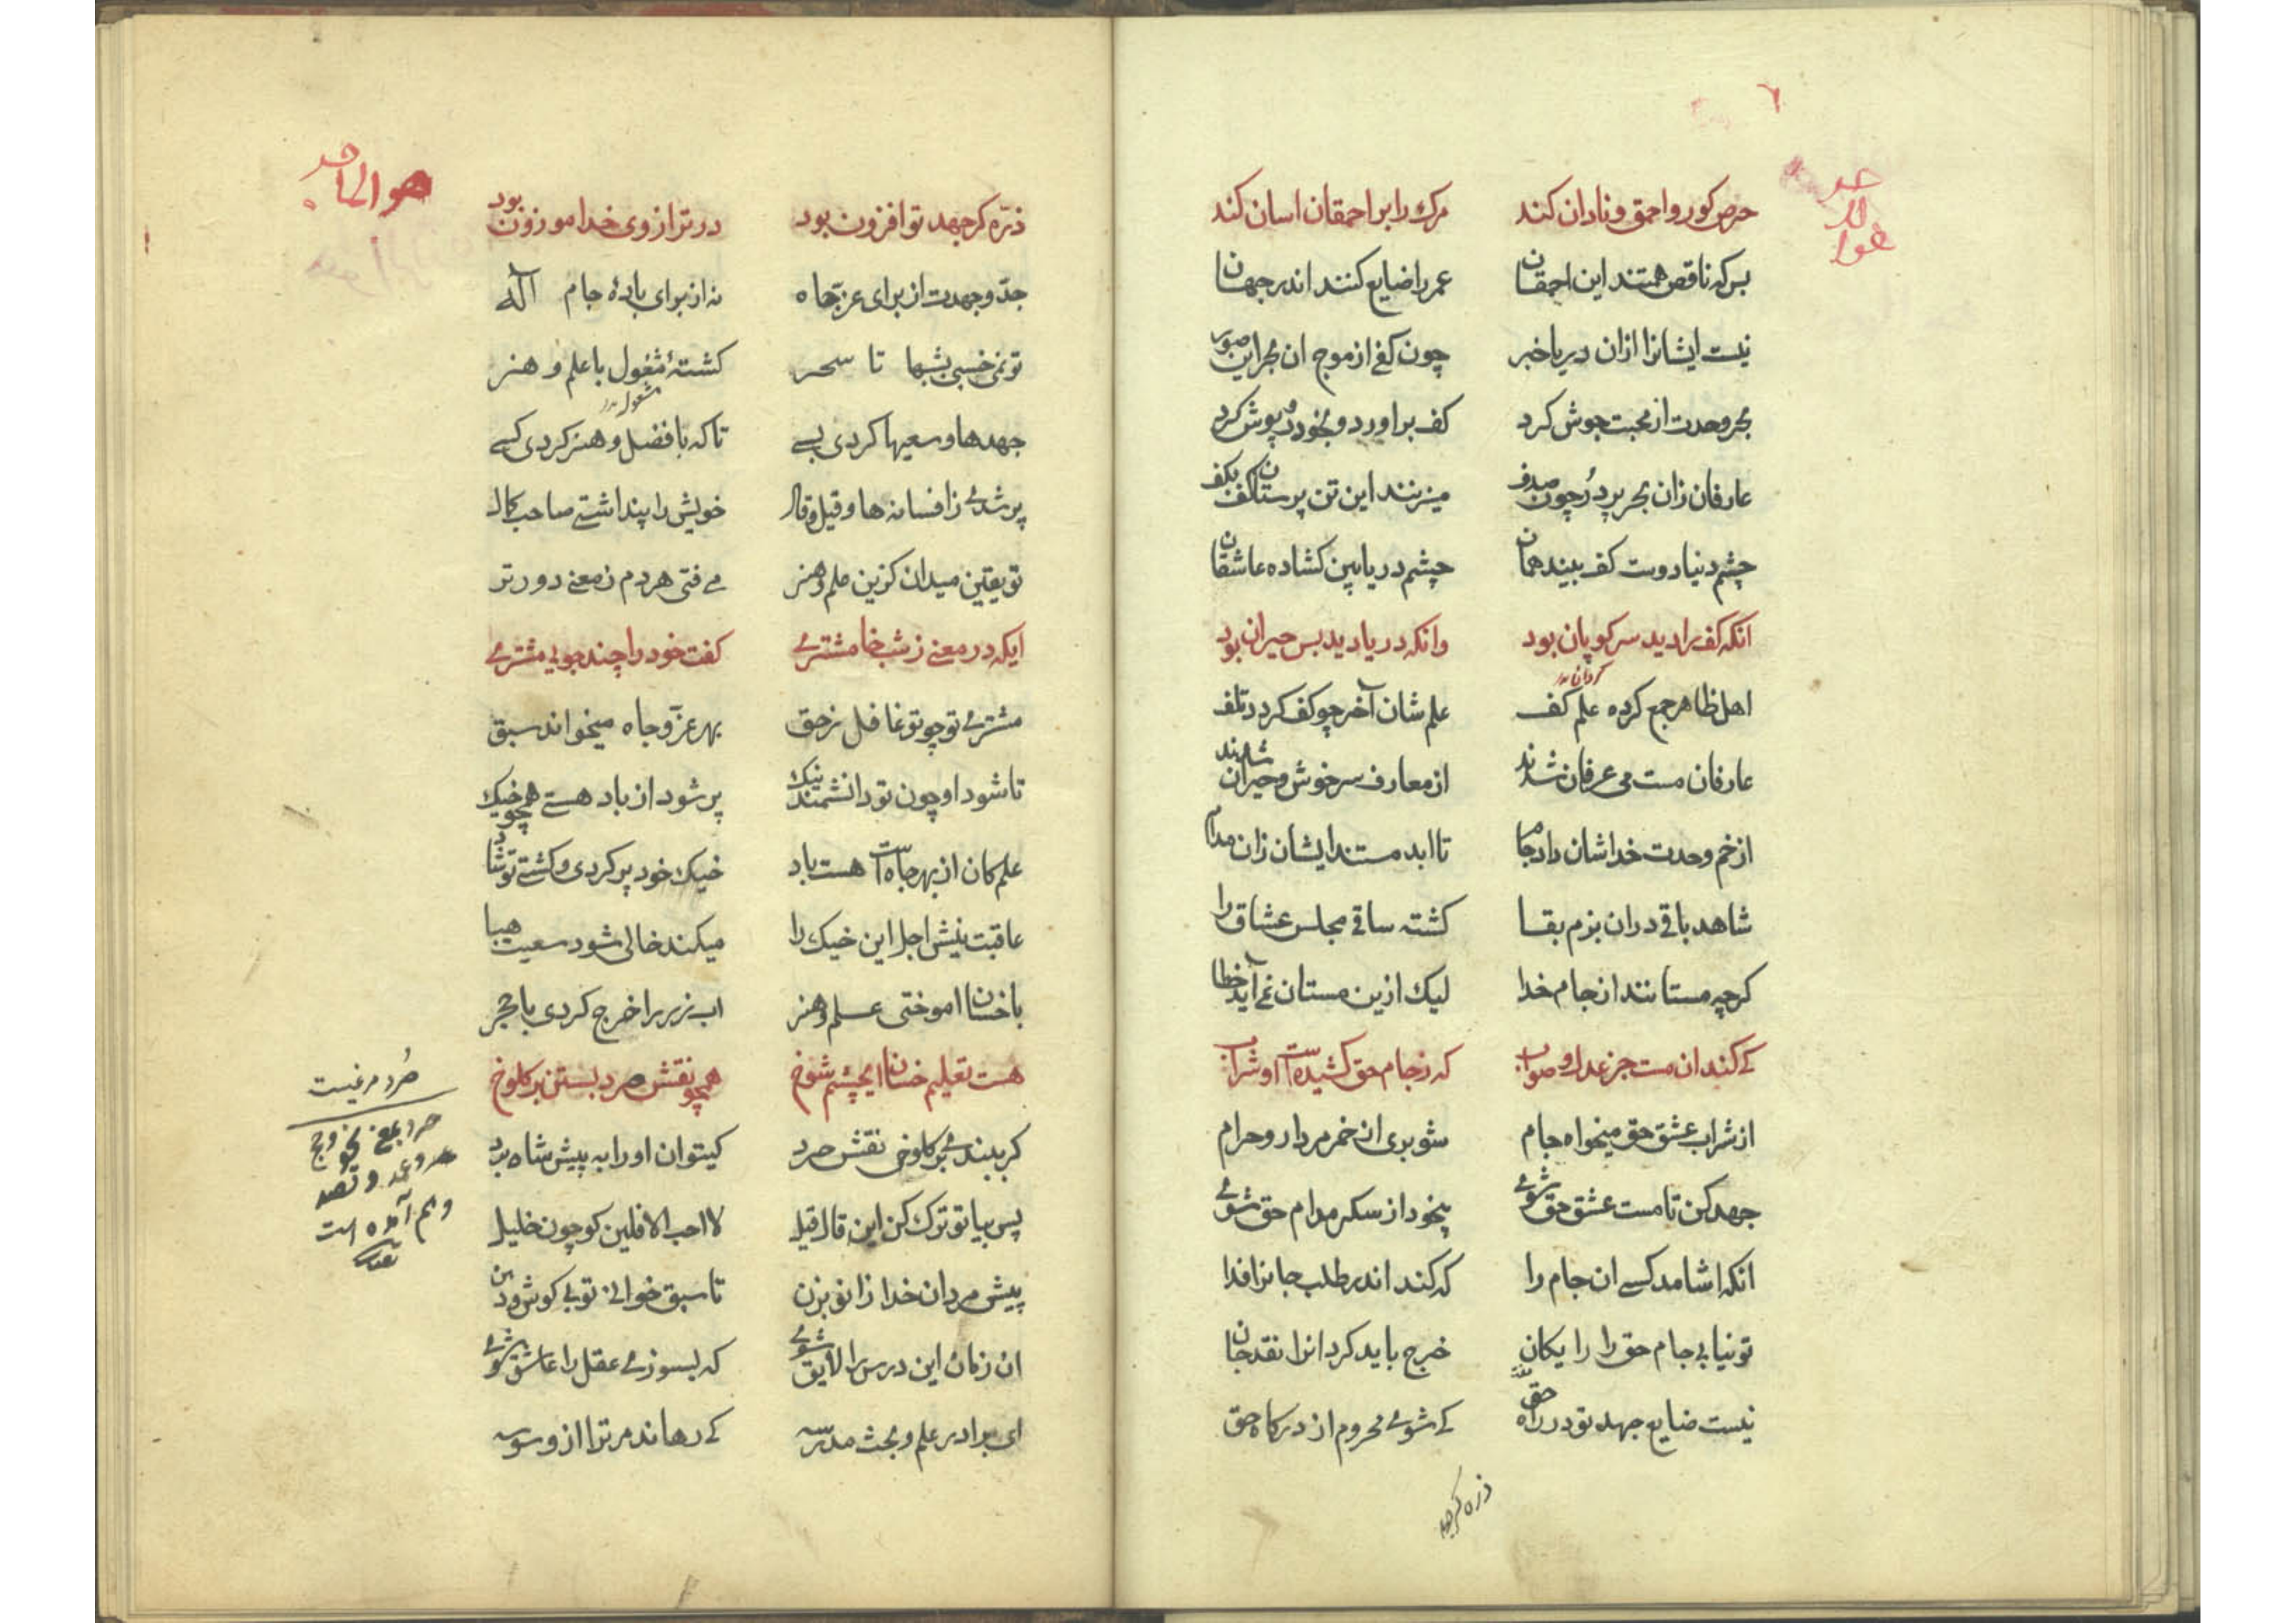 ٦
حرص کور و احمق و نادان کند مرک را بر احمقان اسان کند
بس که ناقص همتند این احمقان عمر را ضایع کنند اندر جهان
نیست ایشانرا ازان دریا خبر چون کفی از موج ان بحر این صور
بحر وحدت از محبت جوش کرد کف براورد و بخود روپوش کرد
عارفان زان بحر پر در چون صدف میزنند این تن پرستان کف بکف
چشم دنیا دوست کف بیند همان چشم دریا بین کشاده عاشقان
انکه کف را دید سر کویان بود وانکه دریا دید بس حیران بود
اهل ظاهر جمع کرده علم کف علم شان آخر چو کف کردد تلف
عارفان مست می عرفان شدند از معارف سرخوش و حیران شدند
از خم وحدت خداشان داد جام تا ابد مستند ایشان زان مدام
شاهد باقی دران بزم بقا کشته ساقی مجلس عشاق را
کرچه مستانند از جام خدا لیک ازین مستان نمی آید خطا
کی کند ان مست جز عدل و صواب که ز جام حق کشیدست او شراب
از شراب عشق حق میخواه جام شو بری از خمر مردار و حرام
جهد کن تا مست عشق حق شوی بیخود از سکر مدام حق شوی
انکه اشامد کسی ان جام را که کند اندر طلب جانرا فدا
تو نیابی جام حق را رایکان خرج باید کرد انرا نقد جان
نیست ضایع جهد تو در راه حق کی شوی محروم از درکاه حق
ذره کر جهد
هو الماجد
ذره کر جهد تو افزون بود در ترازوی خدا موزون بود
جد و جهدت از برای عز و جاه نه از برای باده جام اله
تو نمی خسبی بشبها تا سحر کشته مشغول با علم و هنر
مشغول
جهدها و سعیها کردی بسی تا که با فضل و هنر کردی کسی
پر شدی ز افسانه ها و قیل و قال خویش را پنداشتی صاحب کمال
تو یقین میدان کزین علم و هنر می فتی هر دم ز معنی دورتر
ایکه در معنی ز شب خامشتری کفت خود را چند جویی مشتری
مشتری تو چو تو غافل ز حق بهر عز و جاه میخواند سبق
تا شود او چون تو دانشمند نیک پر شود از باد هستی همچو خیک
علم کان از بهر جاهست هست باد خیک خود پر کردی و کشتی تو شاد
عاقبت نیش اجل این خیک را میکند خالی شود سعیت هبا
با خسان اموختی علم و هنر اب زر را خرج کردی با حجر
هست تعلیم خسان ای چشم شوخ همچو نقش خرد بستن بر کلوخ
کر ببندی بر کلوخی نقش خرد کیتوان او را به پیش شاه برد
پس بیا تو ترک کن این قال قیل لا احب الافلین کو چون خلیل
پیش مردان خدا زانو بزن تا سبق خوانی تو بی کوش و دهن
ان زمان این درس را لایق شوی که بسوزی عقل را عاشق شوی
ای برادر علم و بحث مدرسه کی رهاند مر ترا از وسوسه